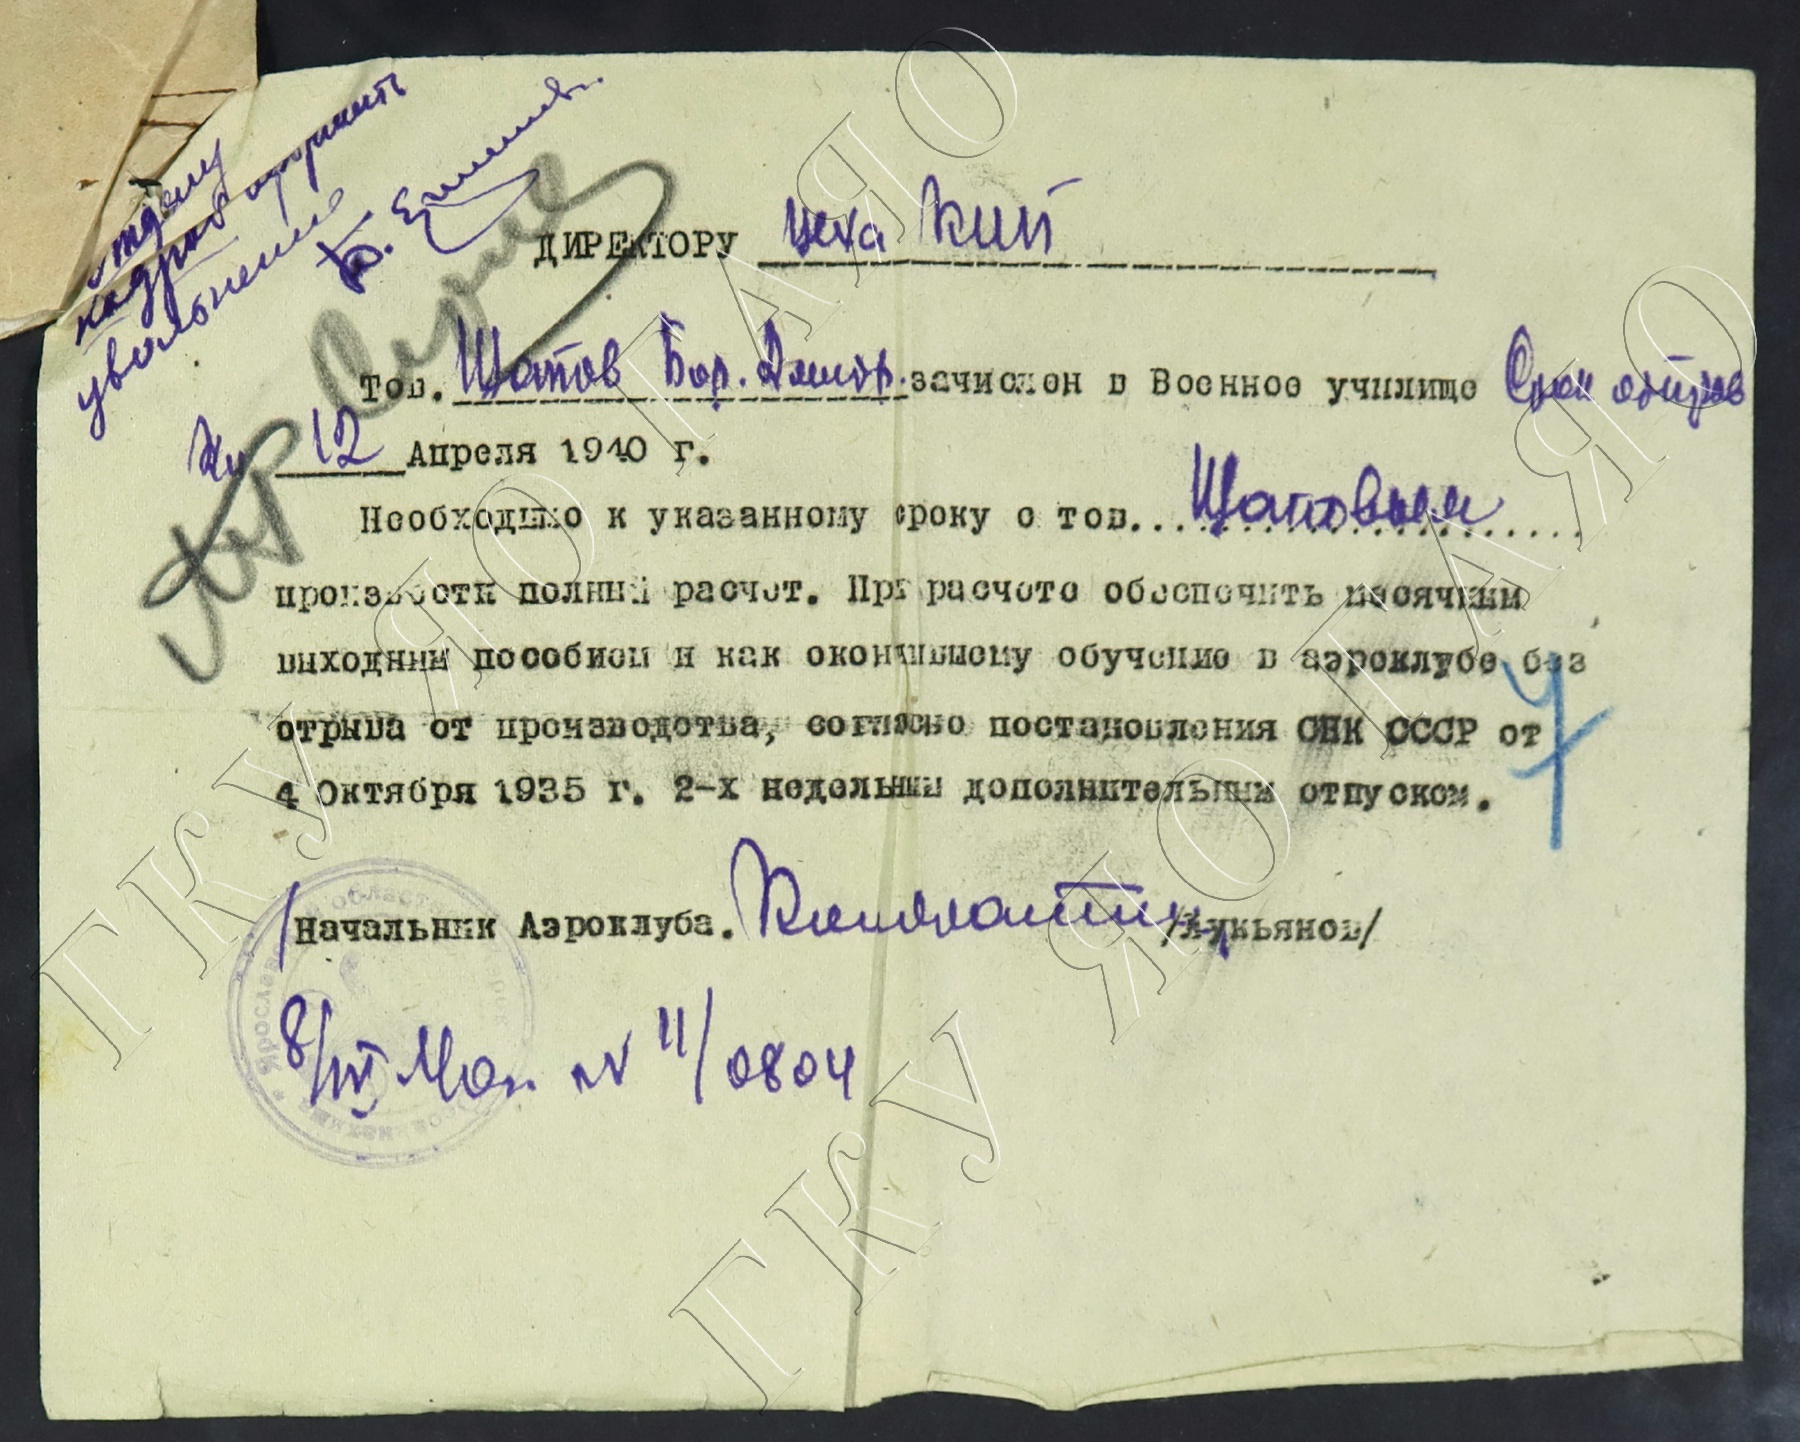 отделу
кадров оформить
увольнение
ДИРЕКТОРУ цеха КИП
Тов. Щапов Бор. зачислен в Военное училище Срок отправ
ки 12 Апреля 1940 г.
Необходимо к указанному сроку с тов. Щаповым
произвести полный расчет. При расчете обеспечить месячным
выходным пособием и как окончившему обучение в аэроклубе без
отрыва от производства, согласно постановления СНК СССР от
4 Октября 1935 г. 2-х недельным дополнительным отпуском.
/Начальник Аэроклуба. /Лукьянов/
8/IV 40г. № 11/0804
ГКУ ЯО ГАЯО
ГКУ ЯО ГАЯО